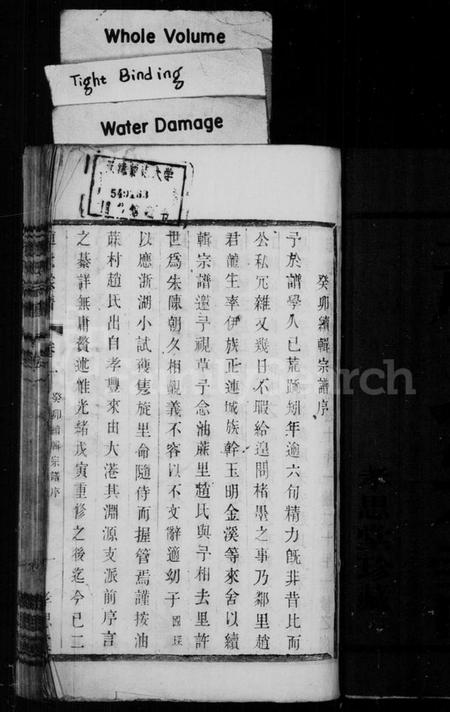 Whole Volume
Tight Binding
Water Damage
大學
癸卯續輯宗譜序
予於譜學久已荒蹊矧年逾六旬精力既非昔比而
公私冗雜又幾日不暇給遑問楮墨之事乃鄰里趙
君龍生率伊族正連城族幹玉明金溪等來舍以續
輯宗譜邀予視草予念油蔴里趙氏與予相去里許
世爲朱陳朝夕相親義不容以不文辭適幼子國琛
以應浙湖小試獲雋旋里命隨侍而握管焉謹按油
蔴村趙氏出自孝豐來由大港其淵源支派前序言
之綦詳無庸贅述惟光緒戊寅重修之後迄今已二
癸卯續輯宗譜序